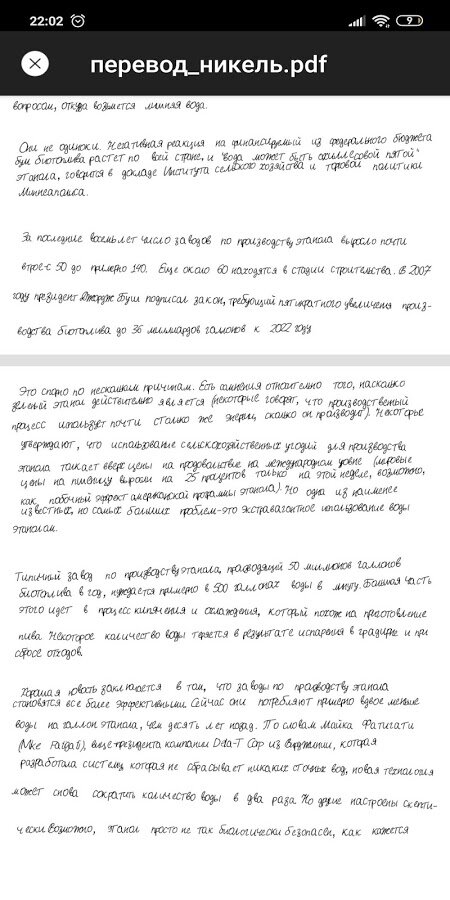 22:02
9
перевод_никель.pdf
вопросам, откуда возьмется лишняя вода.
Они не одиноки. Негативная реакция на финансируемый из федерального бюджета
бум биотоплива растет по всей стране, и "вода может быть ахиллесовой пятой"
этанола, говорится в докладе Института сельского хозяйства и торговой политики
Миннеаполиса.
За последние восемь лет число заводов по производству этанола выросло почти
втрое-с 50 до примерно 140. Еще около 60 находятся в стадии строительства. В 2007
году президент Джордж Буш подписал закон, требующий пятикратного увеличения произ-
водства биотоплива до 36 миллиардов галлонов к 2022 году
Это спорно по нескольким причинам. Есть сомнения относительно того, насколько
зеленый этанол действительно является (некоторые говорят, что производственный
процесс использует почти столько же энергии, сколько он производит). Некоторые
утверждают, что использование сельскохозяйственных угодий для производства
этанола толкает вверх цены на продовольствие на международном уровне (мировые
цены на пшеницу выросли на 25 процентов только на этой неделе, возможно,
как побочный эффект американской программы этанола). Но одна из наименее
известных, но самых больших проблем-это экстравагантное использование воды
этанолом.
Типичный завод по производству этанола, производящий 50 миллионов галлонов
биотоплива в год, нуждается примерно в 500 галлонах воды в минуту. Большая часть
этого идет в процесс кипячения и охлаждения, который похож на приготовление
пива. Некоторое количество воды теряется в результате испарения в градирне и при
сбросе отходов.
Хорошая новость заключается в том, что заводы по производству этанола
становятся все более эффективными. Сейчас они потребляют примерно вдвое меньше
воды на галлон этанола, чем десять лет назад. По словам Майка Фатигати
(Mike Fatigati), вице-президента компании Delta-T Corp из Вирджинии, которая
разработала систему, которая не сбрасывает никаких сточных вод, новая технология
может снова сократить количество воды в два раза. Но другие настроены скепти-
чески. Возможно, этанол просто не так биологически безопасен, как кажется